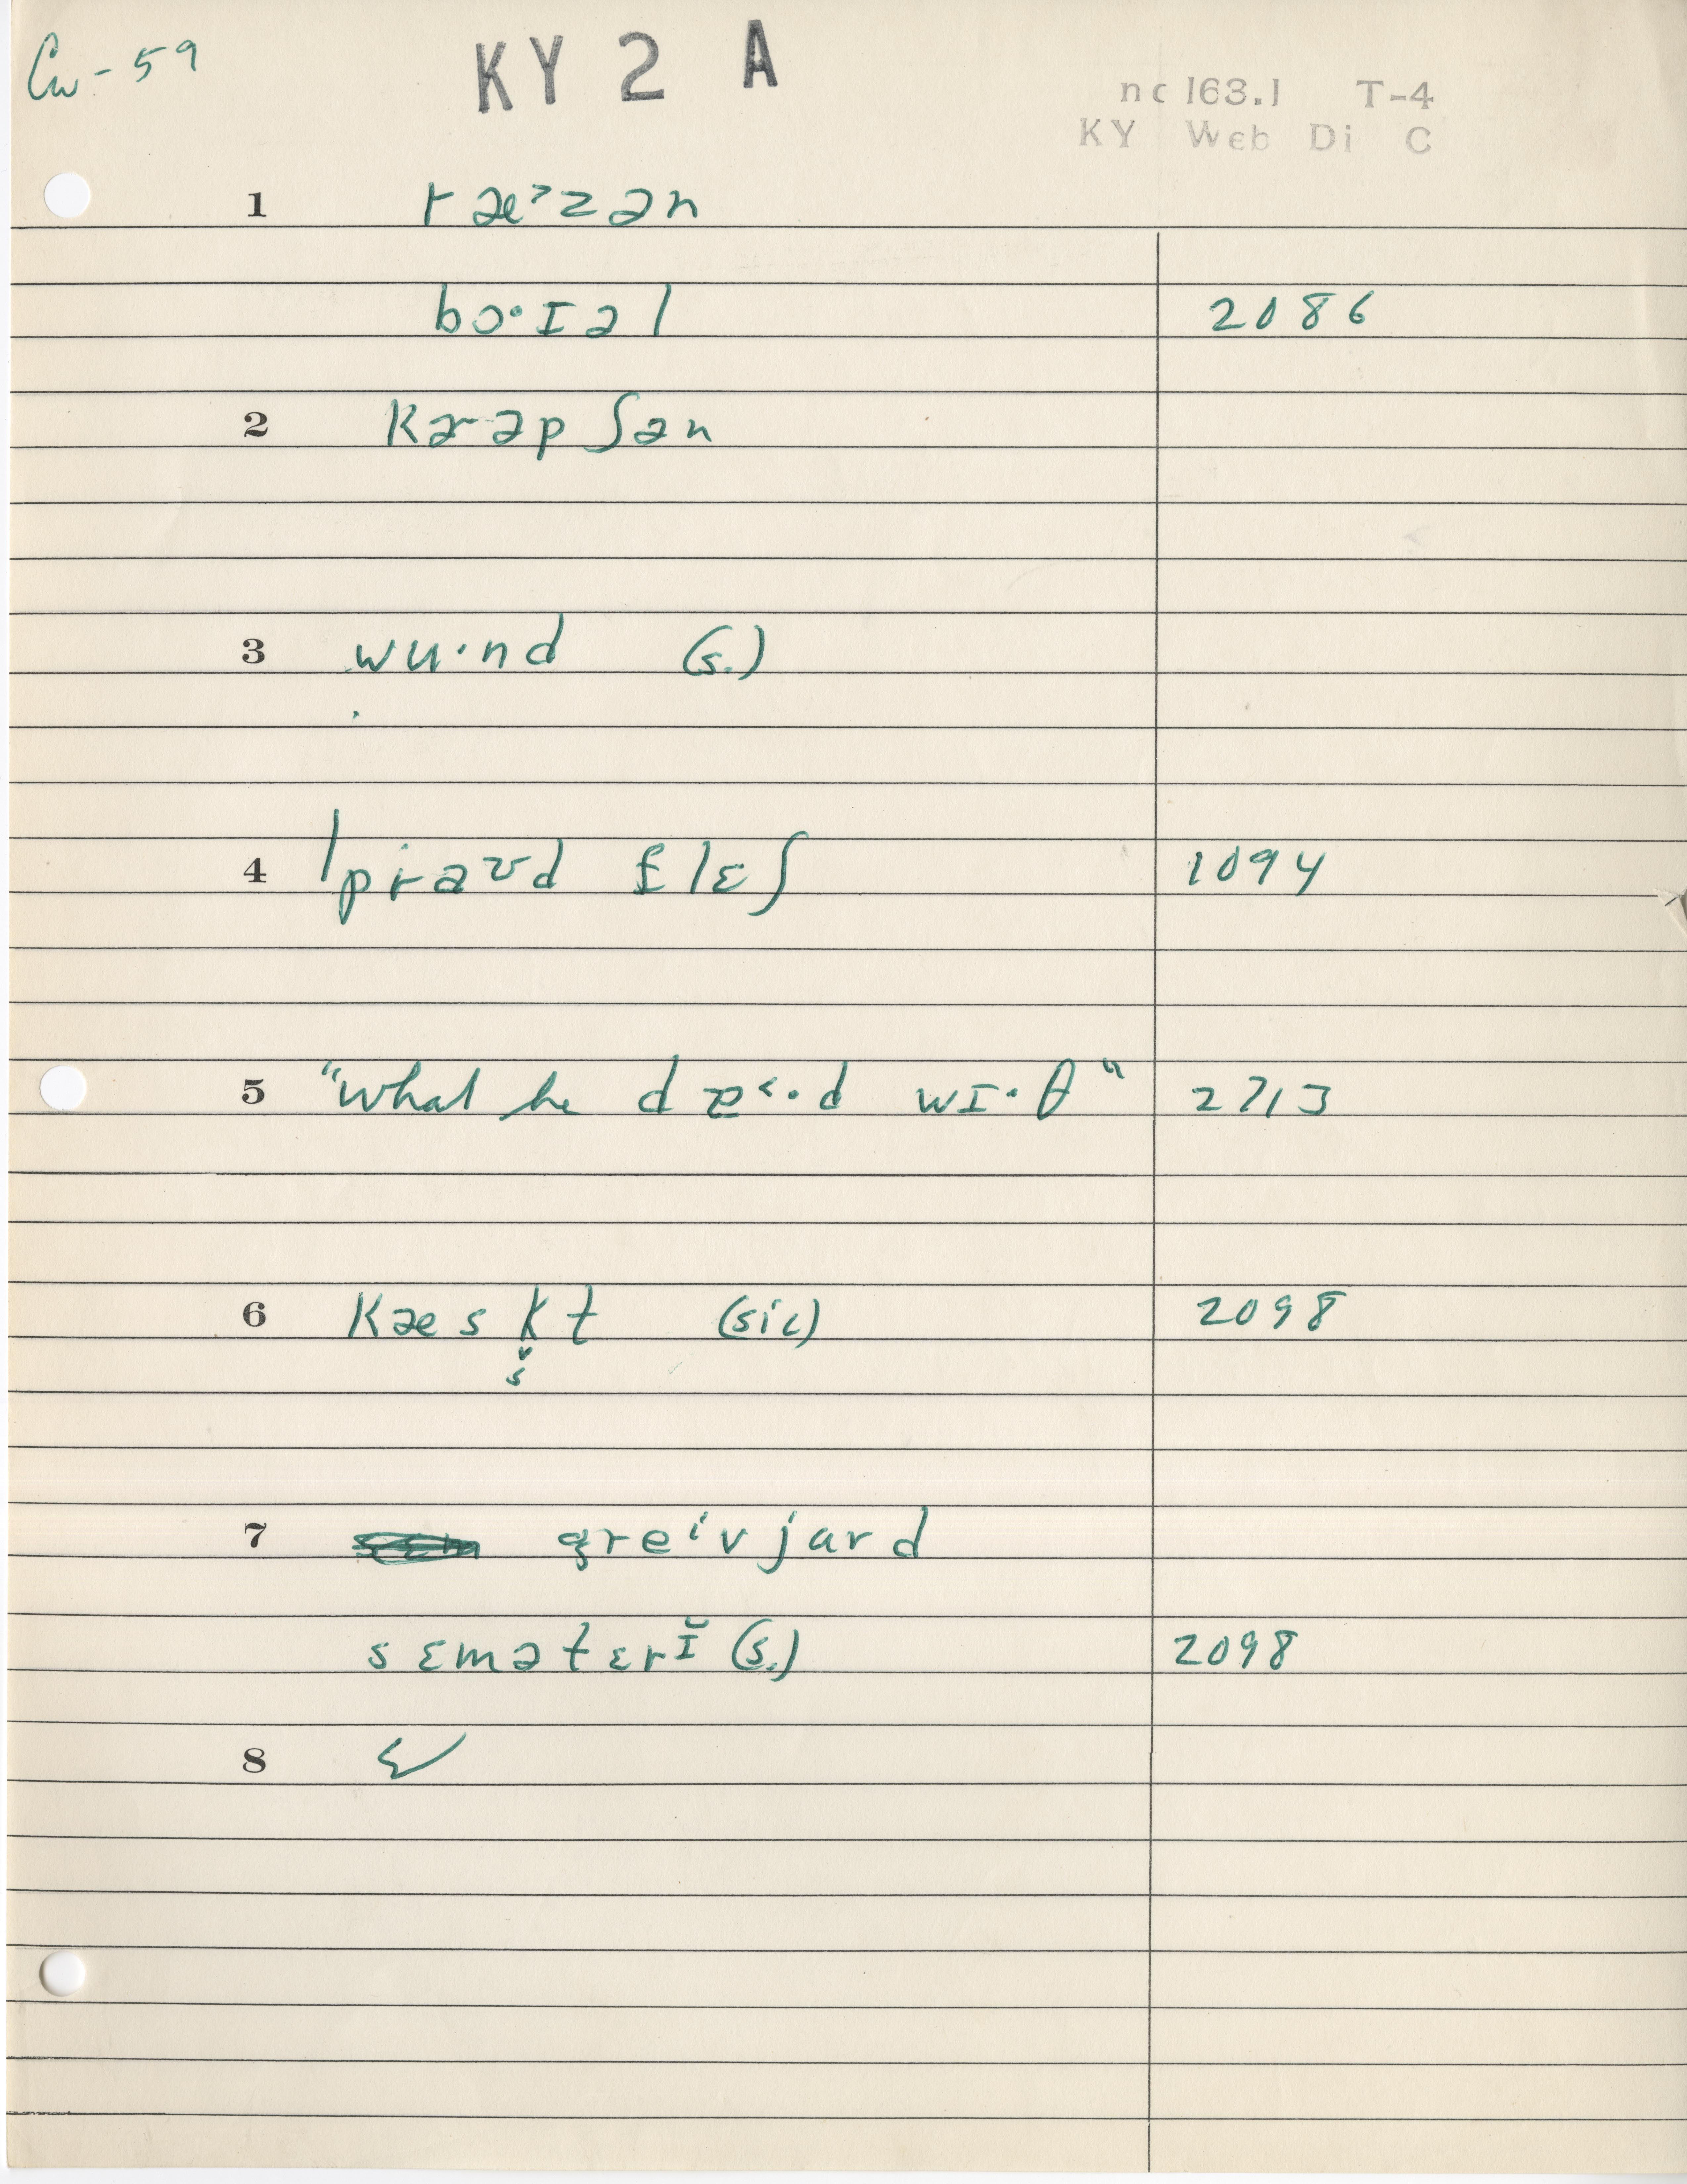 Cw-59
KY 2 A
nc 163.1 T-4
KY Web Di C
1 ræ˃zən
bɔ·ɪəl 2086
2
3 wu·nd (s.)
4 flɛʃ 1094
5 "What he wɪ·θ" 2713
6 kæskt (sic) 2098
š
7 greⁱvjard
sɛmətɛrɪ̆ (s.) 2098
8